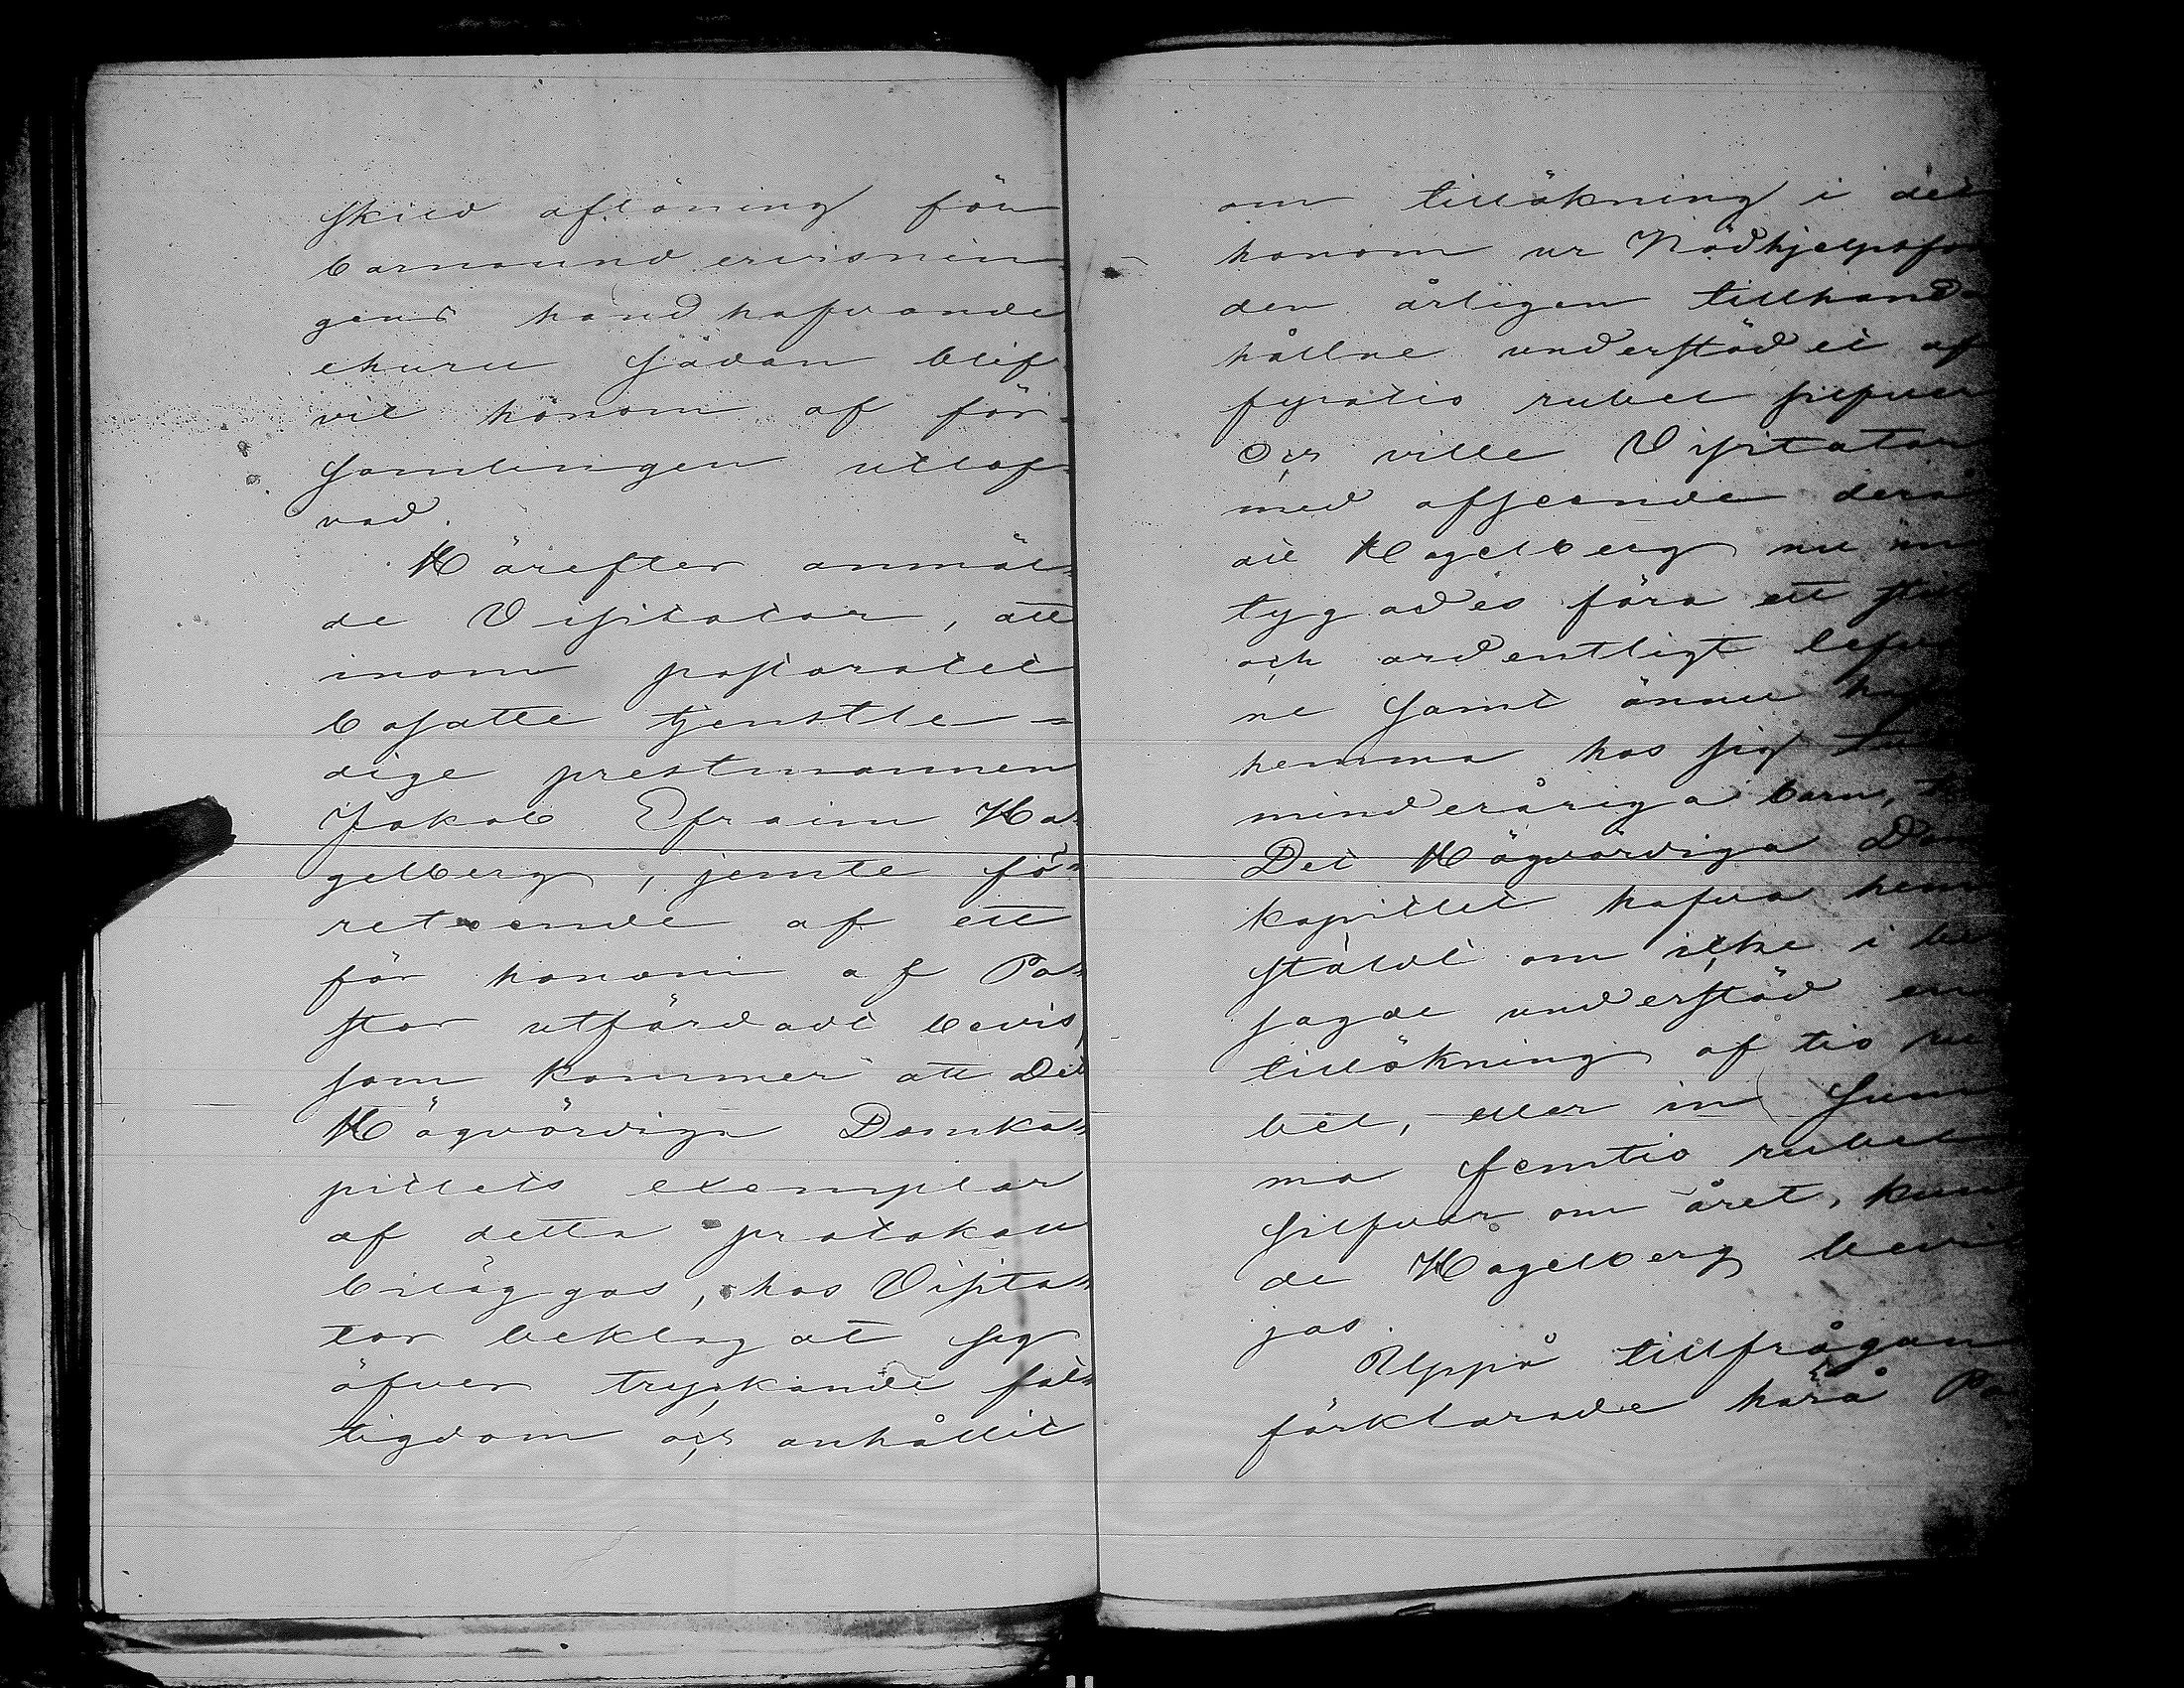 skild aflöning för
barnaundervisnin-
gens handhafvande
ehuru sådan blif-
vit honom af för-
samlingen utlof-
vad.
Härefter anmäl-
de Visitator, att
inom pastoratet
bosatte tjenstle=
dige prestmannen
Jakob Efraim Ha-
gelberg, jemte fö-
reteende af ett
för honom af Pa-
stor utfärdadt bevis,
som kommer att Det
Högvördiga Domka-
pitlets exemplar
af detta protokoll
biläggas, hos Visita-
tor beklagat sig
öfver tryckande fat-
tigdom och anhållit
om tillökning i det
honom ur Nödhjelpsfon
den årligen tillhanda
hållne understödet af
fyratio rubel silfver
Och ville Visitator
med afseende derå
att Hagelberg nu in
tygades föra ett still
och ordentligt lefver
ne samt ännu haf
hemma hos sig
minderåriga barn,
Det Högvördiga Dom
kapitlet hafva hem
stäldt om icke i be
sagde understöd en
tillökning af tio ru
bel, eller in sum
ma femtio rubel
silfver om året, kun
de Hagelberg bevil
jas.
Uppå tillfrågan
förklarade härå Pa